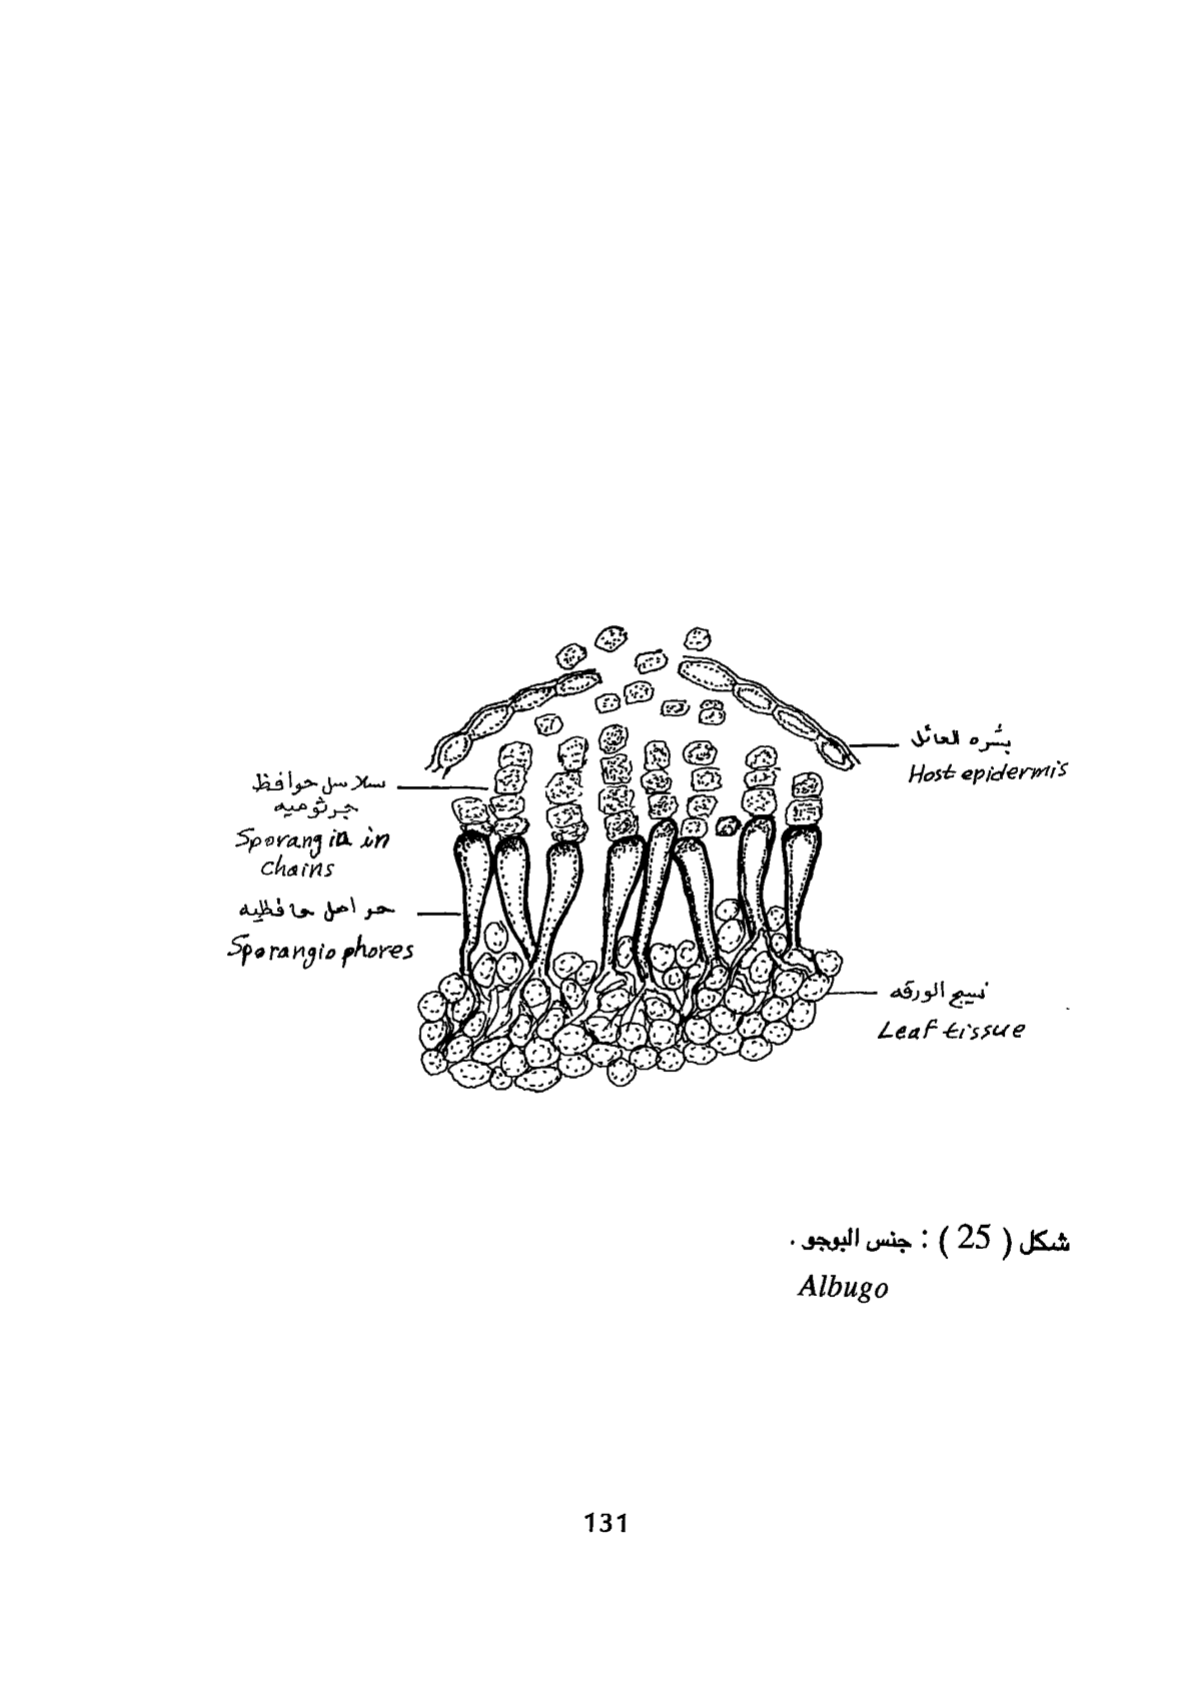 بشره العائل
Host epidermis
سلاسل حوافظ
جرثوميه
Sporangia in
Chains
حوامل حافظيه
Sporangiophores
نسيج الورقه
Leaf tissue
شكل ( 25 ) : جنس البوجو .
Albugo
131